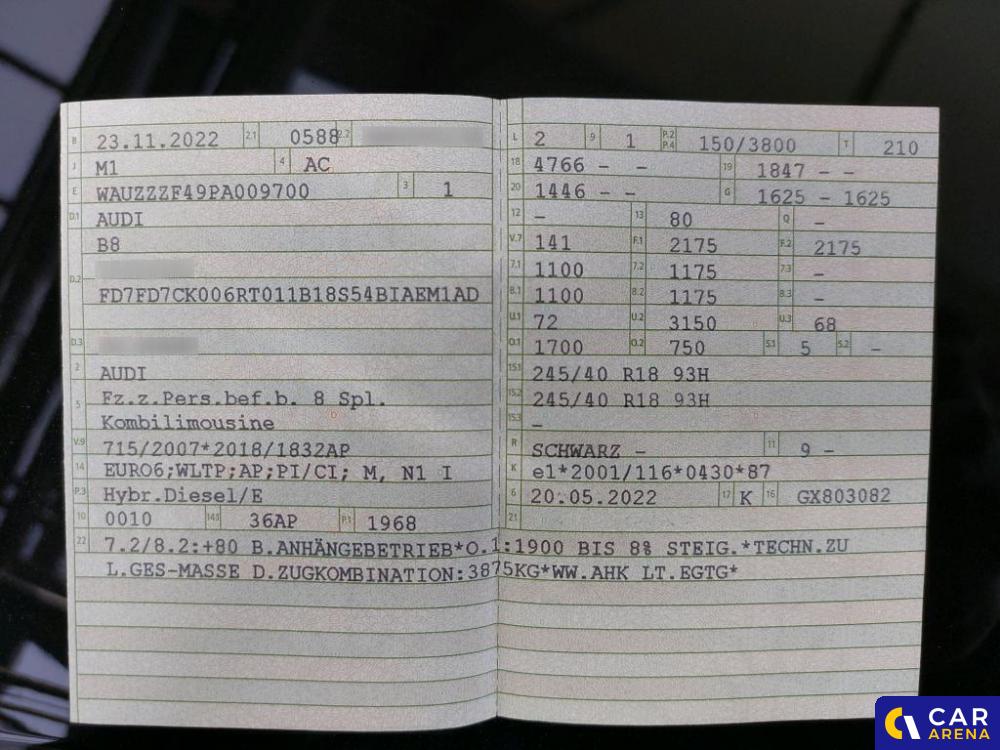 B 23.11.2022 2.1 0588 2.2
J M1 4 AC
E WAUZZZF49PA009700 3 1
D.1 AUDI
B8
D.2
FD7FD7CK006RT011B18S54BIAEM1AD
D.3
2 AUDI
5 Fz.z.Pers.bef.b. 8 Spl.
Kombilimousine
V.9 715/2007*2018/1832AP
14 EURO6;WLTP;AP;PI/CI; M, N1 I
P.3 Hybr.Diesel/E
10 0010 14.1 36AP P.1 1968
L 2 9 1 P.2 P.4 150/3800 T 210
18 4766 - - 19 1847 - -
20 1446 - - G 1625 - 1625
12 - 13 80 Q -
V.7 141 F.1 2175 F.2 2175
7.1 1100 7.2 1175 7.3 -
8.1 1100 8.2 1175 8.3 -
U.1 72 U.2 3150 U.3 68
O.1 1700 O.2 750 S.1 5 S.2 -
15.1 245/40 R18 93H
15.2 245/40 R18 93H
15.3 -
R SCHWARZ - 11 9 -
K e1*2001/116*0430*87
6 20.05.2022 17 K 16 GX803082
21
22 7.2/8.2:+80 B.ANHÄNGEBETRIEB*O.1:1900 BIS 8% STEIG.*TECHN.ZU
L.GES-MASSE D.ZUGKOMBINATION:3875KG*WW.AHK LT.EGTG*
CAR
ARENA